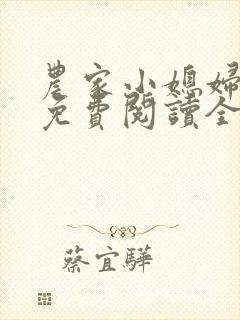 農家小媳婦
免費閱讀全
蔡宜驊